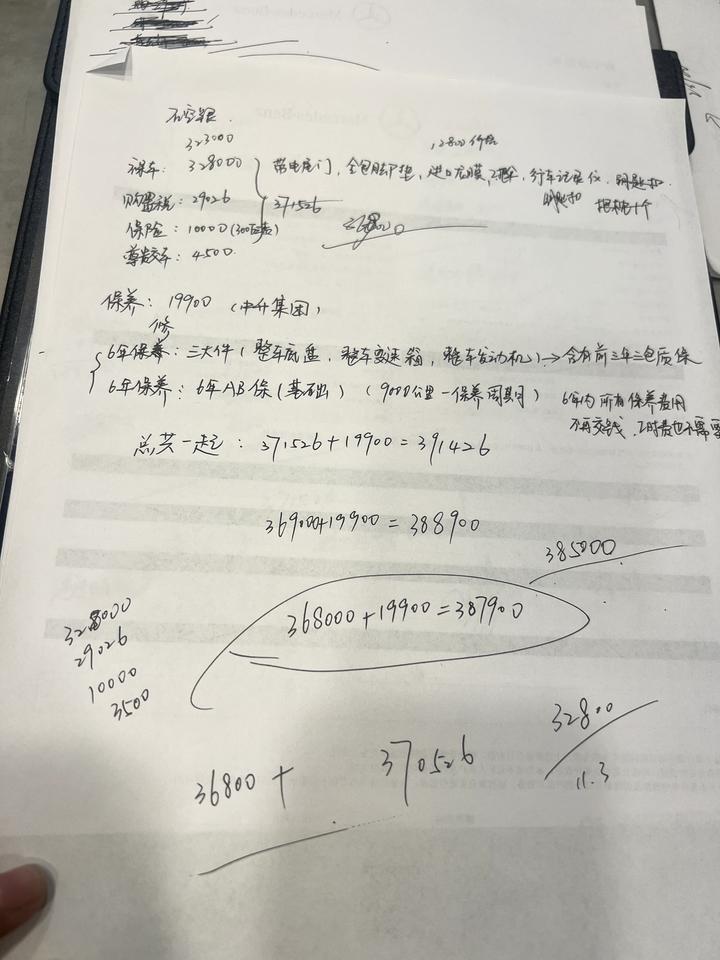 Mercedes-Benz
323000
12800价格
裸车: 328000 带电尾门, 全包脚垫, 进口龙膜, 行车记录仪, 钥匙扣
购置税: 29026 371526
保险: 10000 (300万)
368000
尊贵交车: 4500
保养: 19900 (中升集团)
修
6年保养: 三大件 (整车底盘, 整车变速箱, 整车发动机) → 含有前三年三包质保
6年保养: 6年AB保 (基础) (9000公里一保养周期) 6年内所有保养费用
不再交钱, 工时费也不需要
总共一起: 371526+19900=391426
369000+19900=388900
385000
368000+19900=387900
328000
29026
10000
3500
32800
11.3
36800+ 370526